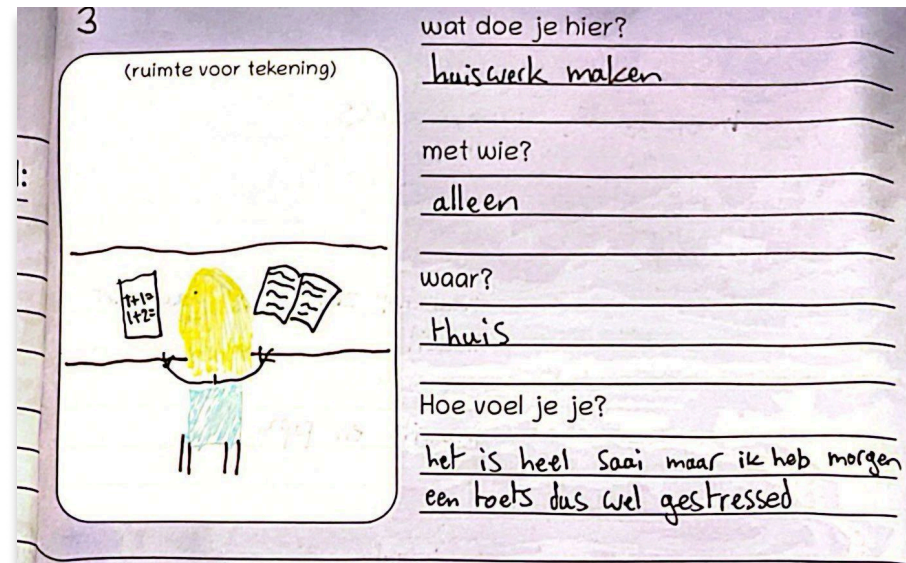 3
(ruimte voor tekening)
1+1=
1+2=
wat doe je hier?
huiswerk maken
met wie?
alleen
waar?
thuis
Hoe voel je je?
het is heel saai maar ik heb morgen
een toets dus wel gestressed